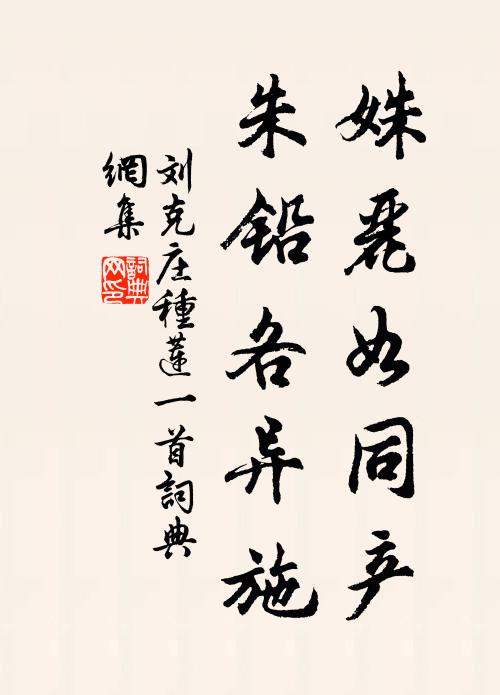 姝麗如同产
朱铅各异施
刘克庄種蓮一首詞典
網集
詞典
网印